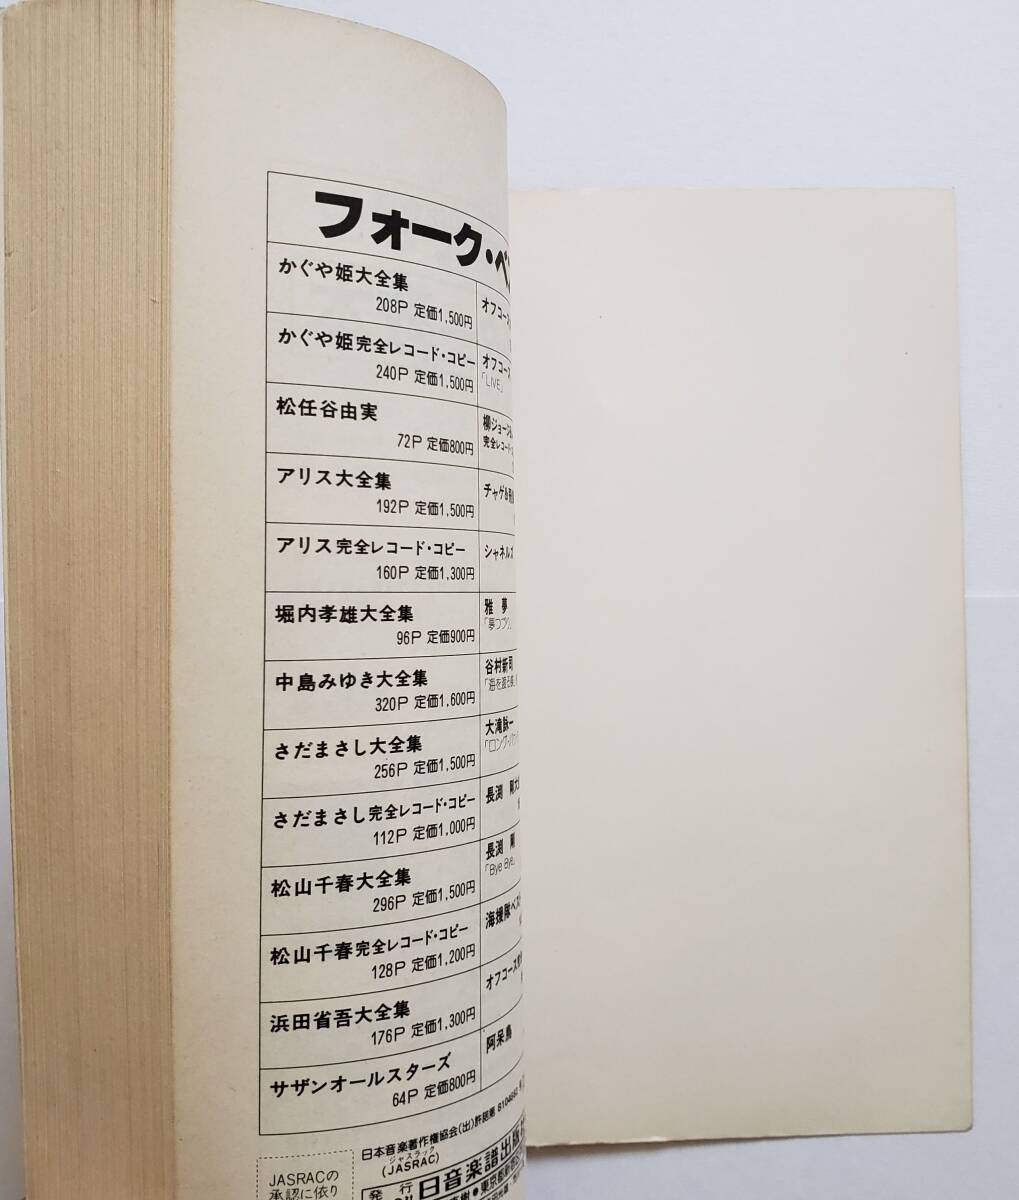 フォーク・ベ
かぐや姫大全集
208P 定価1,500円
かぐや姫完全レコード・コピー
240P 定価1,500円
松任谷由実
72P 定価800円
アリス大全集
192P 定価1,500円
アリス完全レコード・コピー
160P 定価1,300円
堀内孝雄大全集
96P 定価900円
中島みゆき大全集
320P 定価1,600円
さだまさし大全集
256P 定価1,500円
さだまさし完全レコード・コピー
112P 定価1,000円
松山千春大全集
296P 定価1,500円
松山千春完全レコード・コピー
128P 定価1,200円
浜田省吾大全集
176P 定価1,300円
サザンオールスターズ
64P 定価800円
オフコース
オフコース
「LIVE」
柳ジョージ
完全レコード
チャゲ&飛
シャネルズ
雅 夢
「夢つづり」
谷村新司
「海を渡る
大滝詠一
「ロング・バケ
長渕 剛大
長渕 剛
「Bye Bye」
海援隊ベス
オフコース
阿呆鳥
日本音楽著作権協会(出)許諾第
ジャスラック
(JASRAC)
JASRACの
承認に依り
発 行
日音楽譜出版